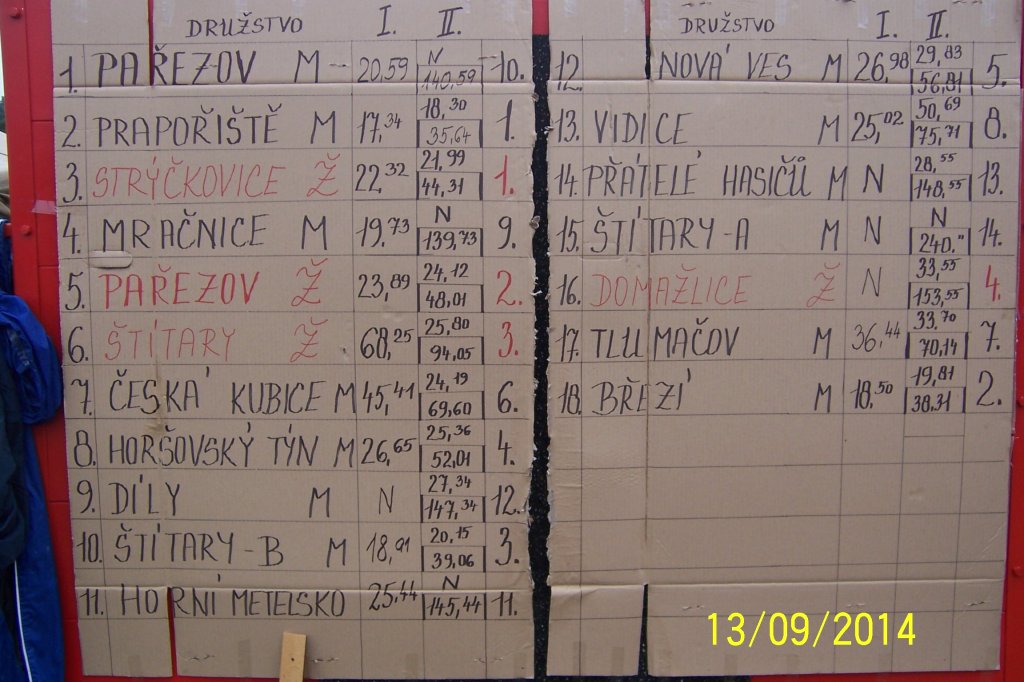 DRUŽSTVO I. II.
1. PAŘEZOV M 20,59 N 140,59 10.
2. PRAPOŘIŠTĚ M 17,34 18,30 35,64 1.
3. STRÝČKOVICE Ž 22,32 21,99 44,31 1.
4. MRAČNICE M 19,73 N 139,73 9.
5. PAŘEZOV Ž 23,89 24,12 48,01 2.
6. ŠTÍTARY Ž 68,25 25,80 94,05 3.
7. ČESKÁ KUBICE M 45,41 24,19 69,60 6.
8. HORŠOVSKÝ TÝN M 26,65 25,36 52,01 4.
9. DÍLY M N 27,34 147,34 12.
10. ŠTÍTARY-B M 18,91 20,15 39,06 3.
11. HORNÍ METELSKO 25,44 N 145,44 11.
DRUŽSTVO I. II.
12. NOVÁ VES M 26,98 29,83 56,81 5.
13. VIDICE M 25,02 50,69 75,71 8.
14. PŘÁTELÉ HASIČŮ M N 28,55 148,55 13.
15. ŠTÍTARY-A M N N 240." 14.
16. DOMAŽLICE Ž N 33,55 153,55 4.
17. TLUMAČOV M 36,44 33,70 70,14 7.
18. BŘEZÍ M 18,50 19,81 38,31 2.
13/09/2014